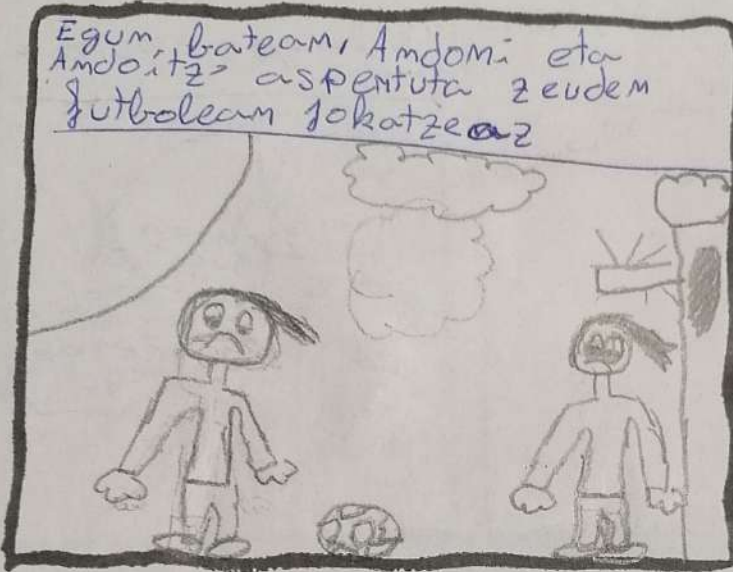 Egun batean, Andoni eta
Andoitz, aspertuta zeuden
futbolean jokatzeaz